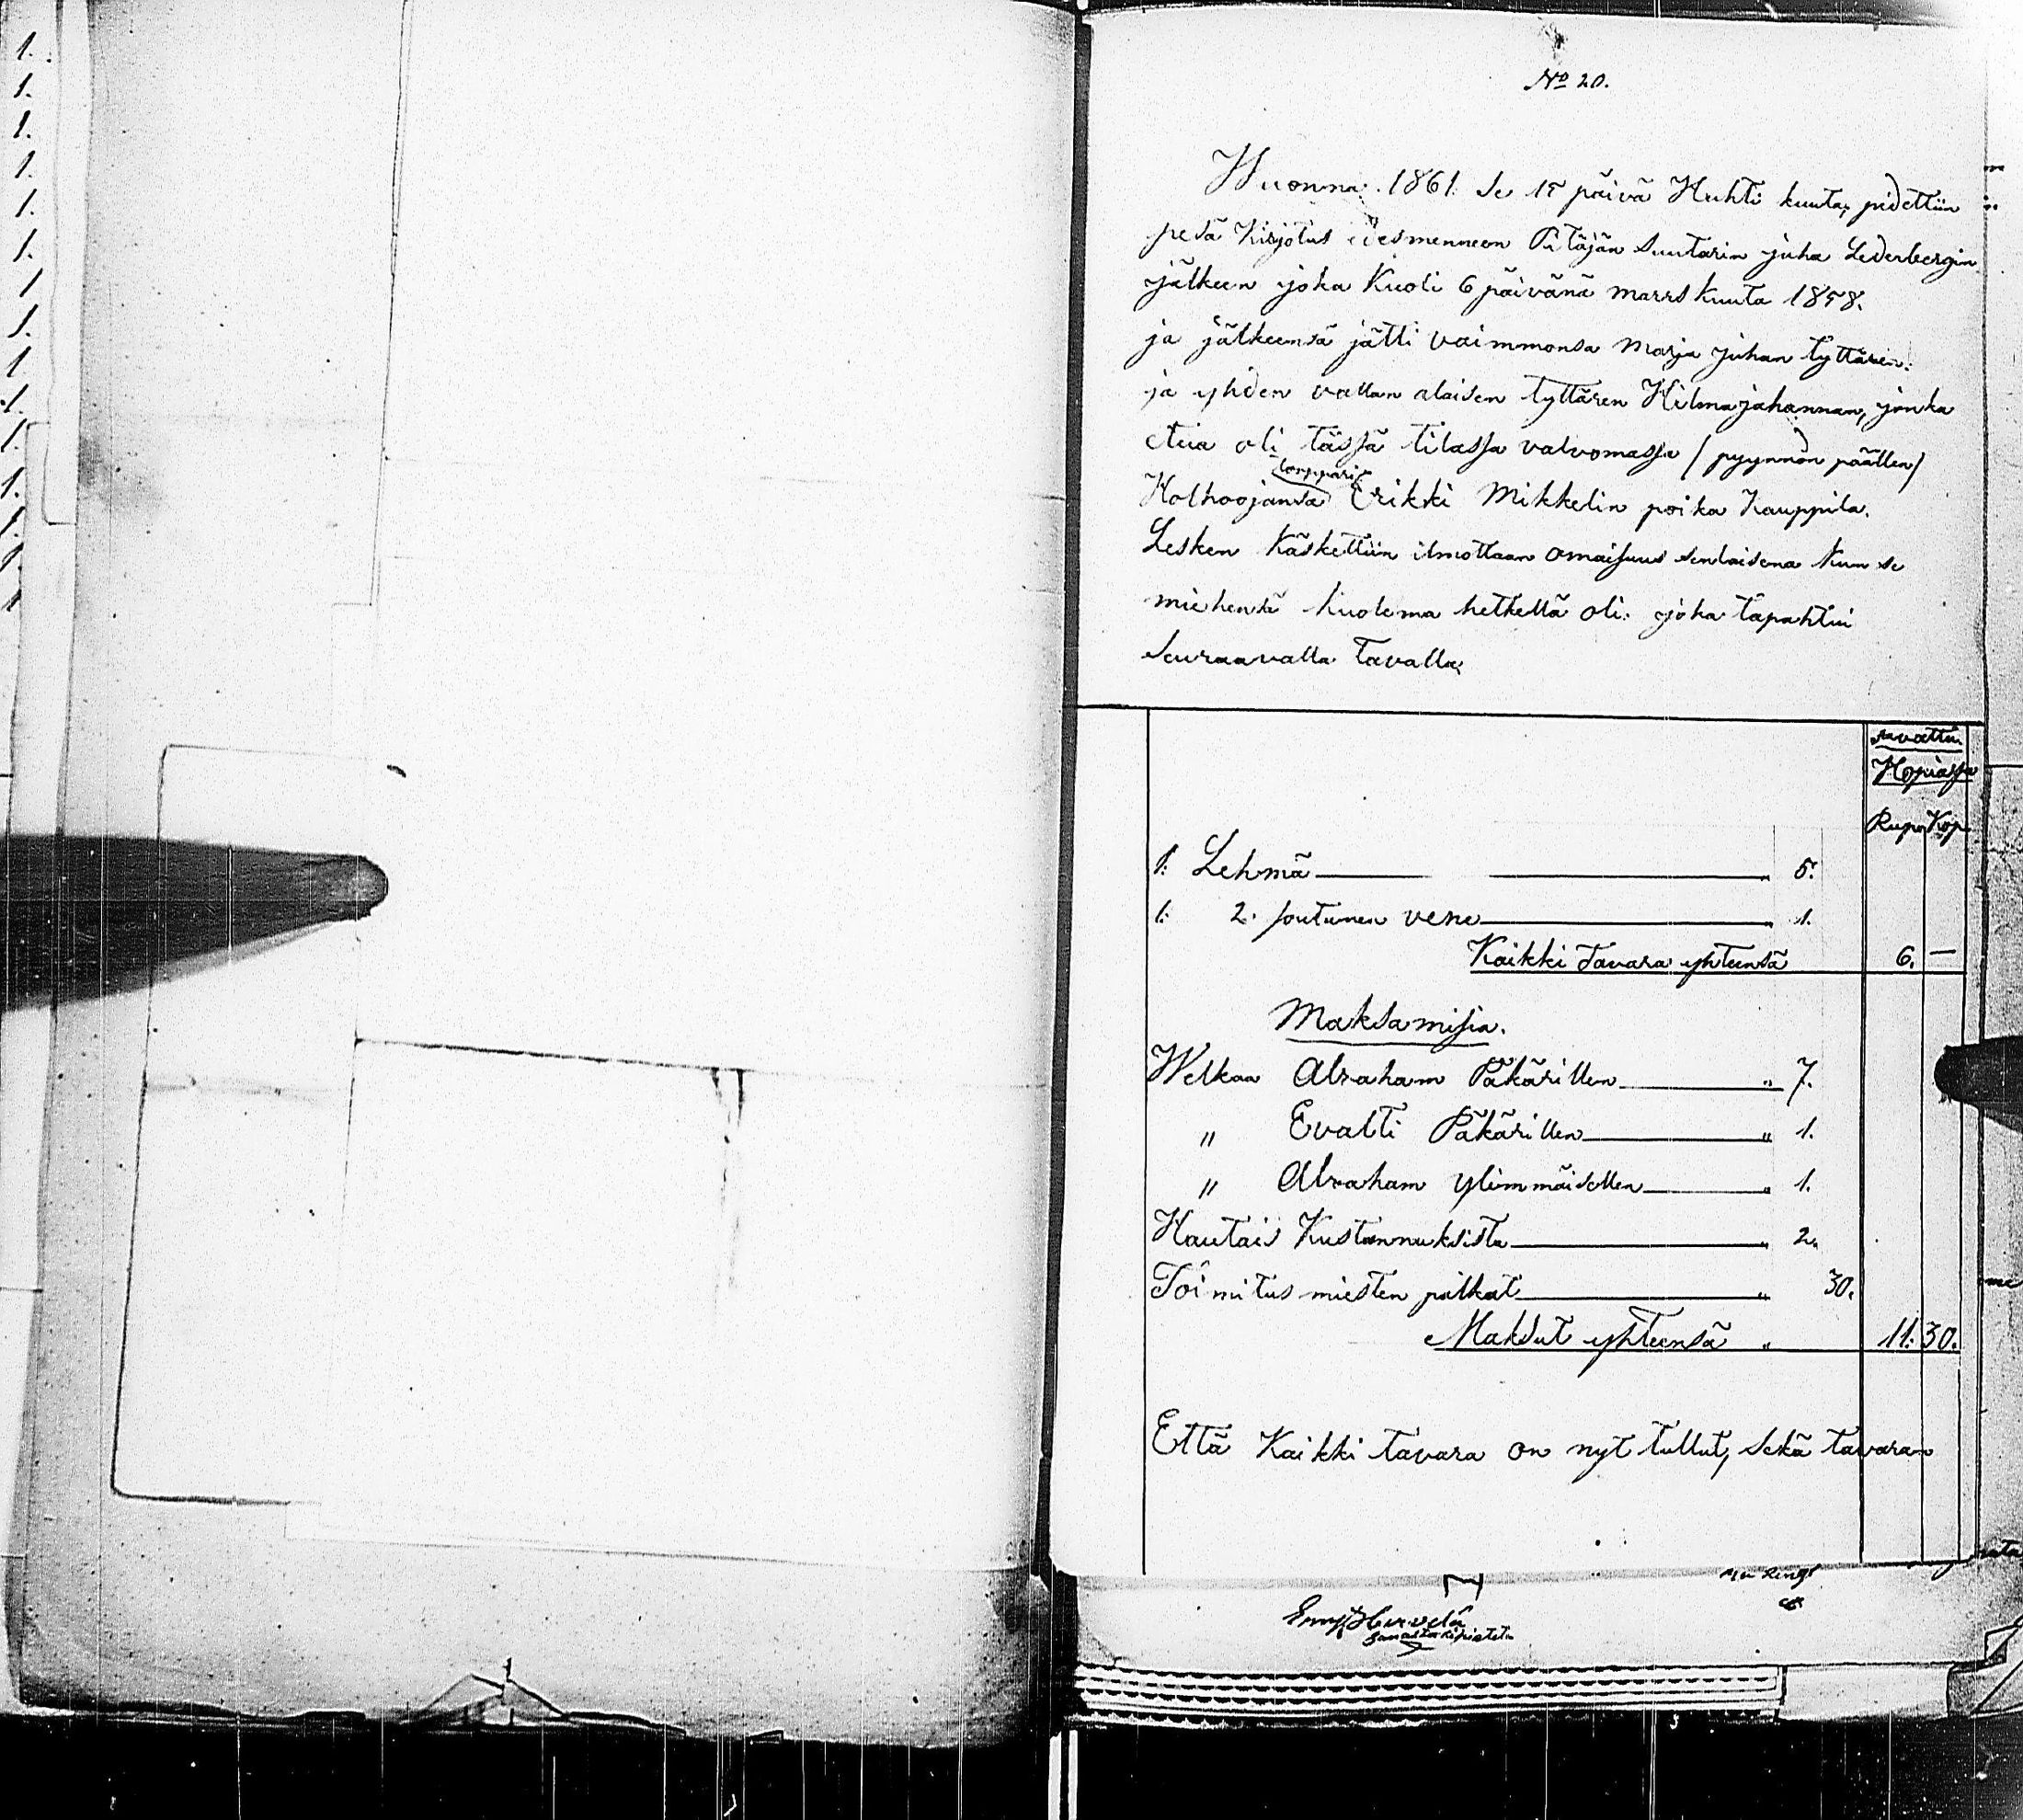 1.
1.
1.
1.
1.
1.
1
1.
1
1.
1.
1.
1.
1
1
No 20.
Wuonna 1861. Se 15 päivä Huhti kuuta, pidettiin
pesä Kirjotus edesmenneen Pitäjän Suutarin juha Lederbergin
jälkeen joka Kuoli 6 päivänä marrs Kuuta 1858.
ja jälkeensä jätti vaimmonsa Marja juhan tyttären.
ja yhden vallan alaisen tyttären Hilma johannan, jonka
etua oli tässä tilassa valvomassa / pyynnön päällen /
torppari
Holhoojansa Erikki Mikkelin poika Kauppila.
Lesken Käskettiin ilmottaan omaisuus senlaisena Kun se
miehensä kuolema hetkellä oli: joka tapahtui
Seuraavalla Tavalla;
arvattu
Hopiassa
Rupl Kop
1: Lehmä " 5:
1: 2. soutunen vene " 1.
Kaikki Tavara yhteensä 6. —
Maksamisia.
Welkaa Abraham Päkärillen " 7.
" Evalti Päkärillen " 1.
" Abraham ylimmäisellen " 1.
Hautais Kustannuksista " 2.
Toimitus miesten palkat " 30.
Maksut yhteensä " 11: 30.
Että Kaikki tavara on nyt tullut, Sekä tavaran